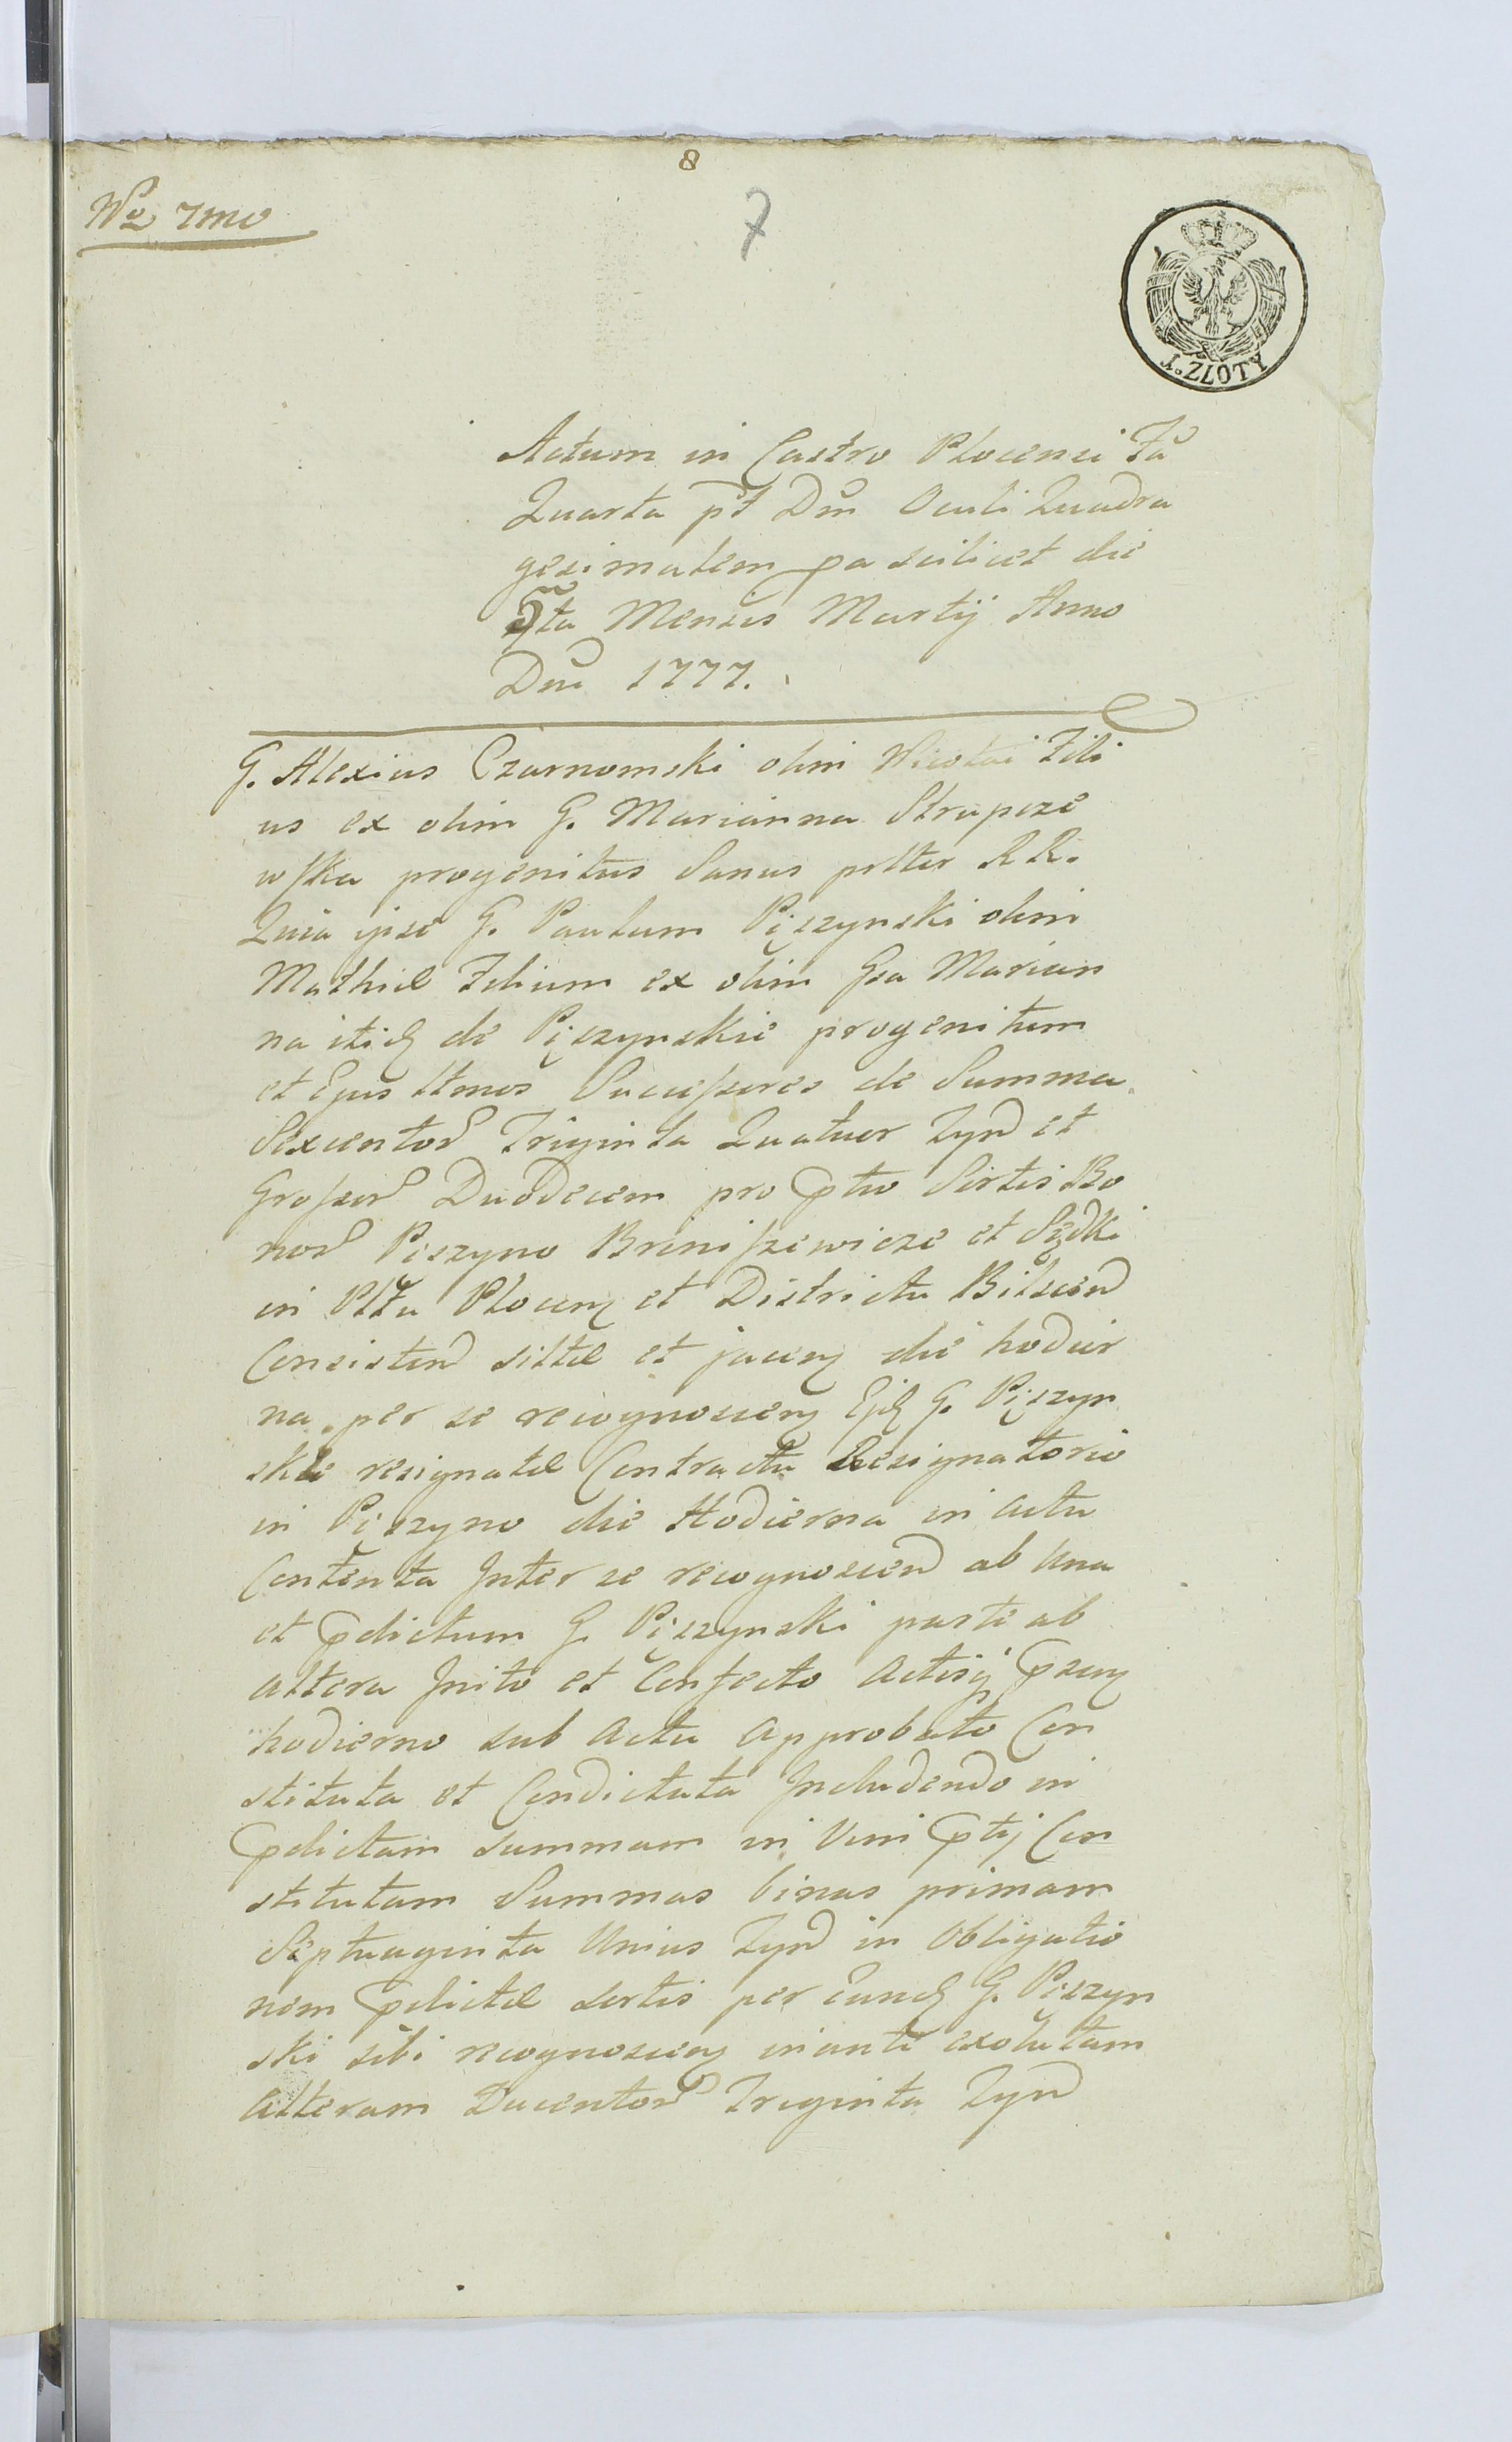 8
No 7mo
7
1. ZŁOTY
Actum in Castro Plocensi Fa
Quarta pt Dm Oculi Quadra
gesimalem pa scilicet die
5ta Mensis Martij Anno
Dni 1777.
G. Alexius Czarnomski olim Nicolai Fili
us ex olim G. Marianna Strupcze
wska progenitus Sanus pltter RR.
Quia ipse G. Paulum Pęszynski olim
Mathiæ Filium ex olim Gsa Marian
na itidẽ de Pęszynskie progenitum
et Ejus ltmos Successores de Summa
Sexcentor Triginta Quatuor Fynd et
Grossor Duodecem pro ptio Sortis Bo
nor Pęszyno Briniszewicze et Sędki
in Plttu Plocen et District Bilscen
Consisten sittæ et jacen die hodier
na per se recognoscen Ejd G. Pęszyn
ski resignatæ Contractu Resignatorio
in Pęszyno die Hodierna in actu
Contenta Inter se recognoscen ab Una
et pdictum G. Pęszynski parte ab
altera Inito et Confecto Actisq pzen
hodierno sub Actu approbato Con
stituta et Condictata Includendo in
pdictam summam in Vim ptij Con
stitutam Summas binas primam
Septuaginta Unius Fynd in Obligatio
nem pdictæ sortis per eund G. Pęszyn
ski sibi recognoscen inante exolutam
Alteram Ducentor Triginta Fynd